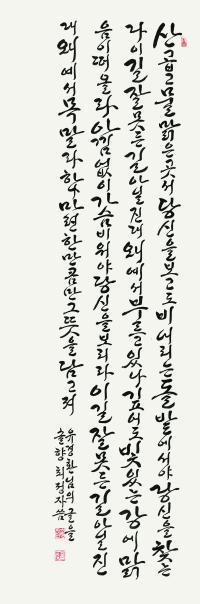 산 곱고 물 맑은 곳서 당신을 보고도 비어리는 돌밭에서야 당신을 찾는
라 이 길 잘못 든 길 아닐진대 왜 예서 부르고 있나 깊어도 빛 있는 강에 맑
음이 떠올라 아낌없이 가슴 비워야 당신을 보리라 이 길 잘못 든 길 아닐진
대 왜 예서 목말라 하나 마련한 만큼만 그 뜻을 담그려
유경환님의 글을
솔향 최정자 씀